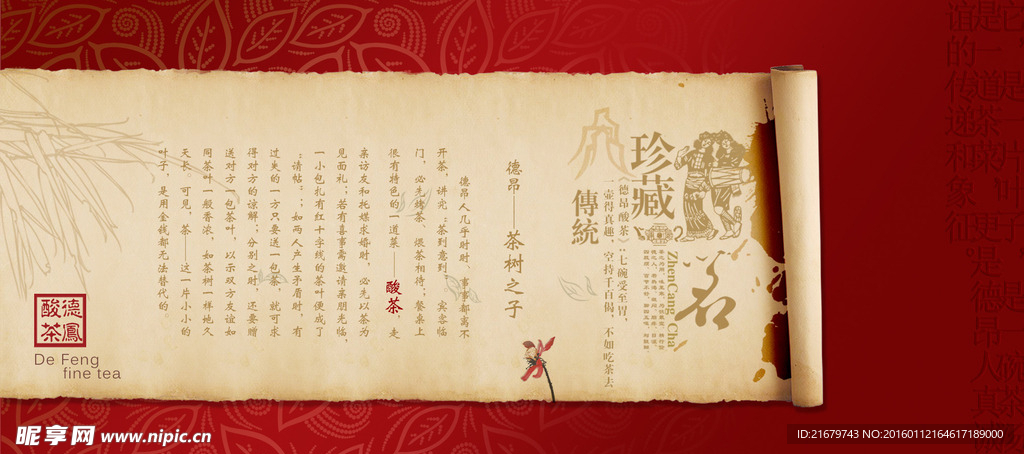 珍藏
茗
ZhenCang Cha
傳統
《德昂酸茶》:七碗受至胃,
一壶得真趣,空持千百偈,不如吃茶去
德昂——茶树之子
德昂人几乎时时、事事都离不
开茶,讲究:“茶到意到”,宾客临
门,必先烤茶、煨茶相待;餐桌上
很有特色的一道菜——酸茶,走
亲访友和托媒求婚时,必先以茶为
见面礼;若有喜事需邀请亲朋光临,
一小包扎有红十字线的茶叶便成了
“请帖”;如两人产生矛盾时,有
过失的一方只要送一包茶,就可求
得对方的谅解;分别之时,还要赠
送对方一包茶叶,以示双方友谊如
同茶叶一般香浓,如茶树一样地久
天长。可见,茶——这一片小小的
叶子,是用金钱都无法替代的。
德鳳
酸茶
De Feng
fine tea
昵享网 www.nipic.cn
ID:21679743 NO:20160112164617189000